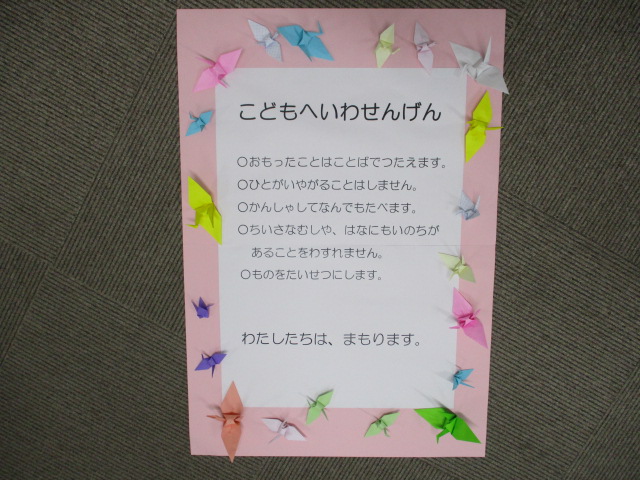 こどもへいわせんげん
〇おもったことはことばでつたえます。
〇ひとがいやがることはしません。
〇かんしゃしてなんでもたべます。
〇ちいさなむしや、はなにもいのちが
あることをわすれません。
〇ものをたいせつにします。
わたしたちは、まもります。